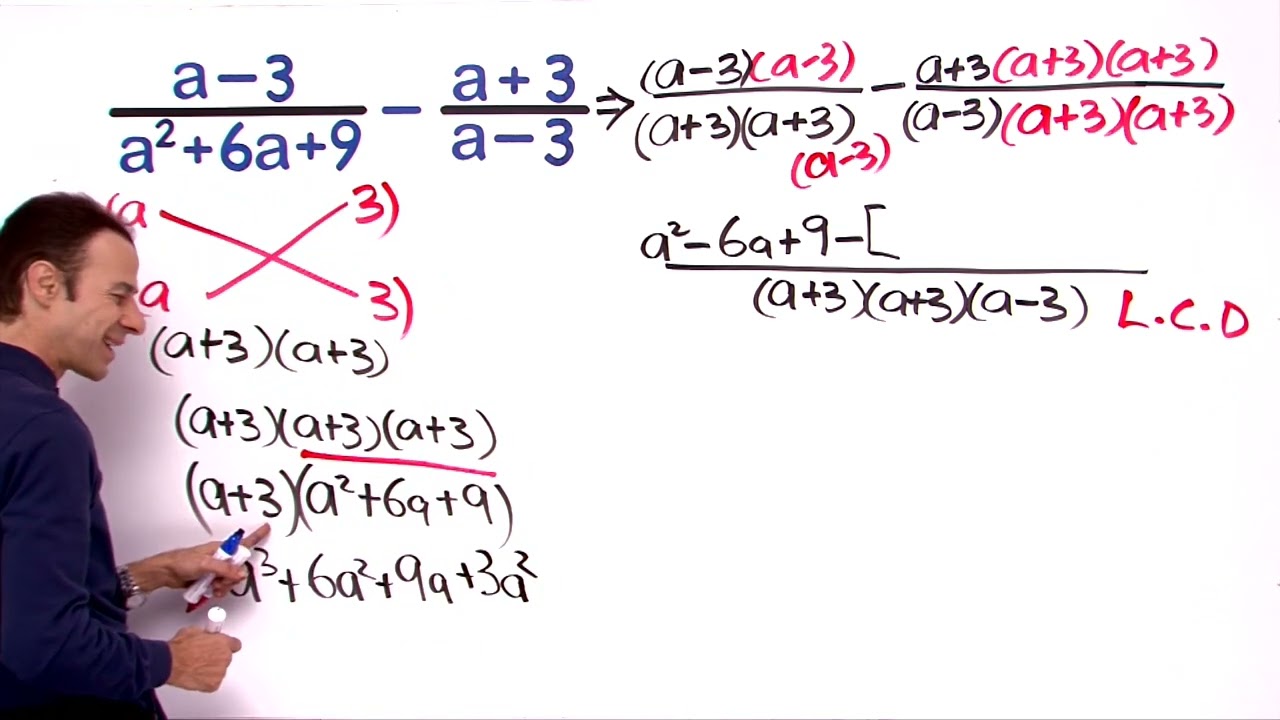 a-3 / a²+6a+9 - a+3 / a-3 ⇒ (a-3)(a-3) / (a+3)(a+3)(a-3) - a+3(a+3)(a+3) / (a-3)(a+3)(a+3)
(a 3)
a 3)
(a+3)(a+3)
(a+3)(a+3)(a+3)
(a+3)(a²+6a+9)
a³+6a²+9a+3a²
a²-6a+9-[
(a+3)(a+3)(a-3) L.C.D